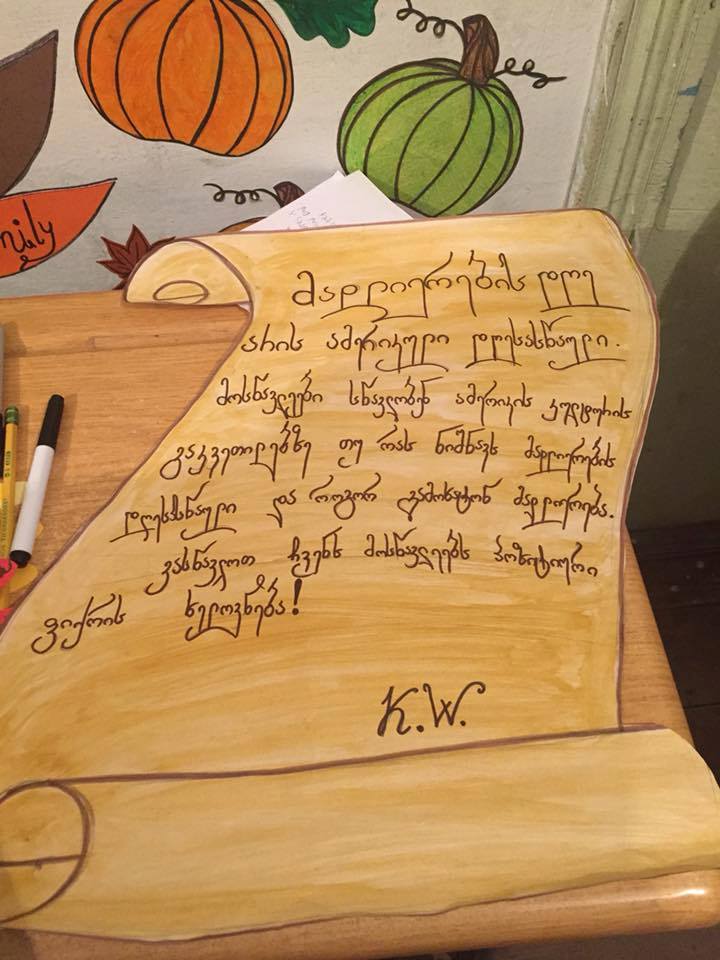 მადლიერების დღე
არის ამერიკული დღესასწაული.
მოსწავლეები სწავლობენ ამერიკის კულტურის
გაკვეთილებზე თუ რას ნიშნავს მადლიერების
დღესასწაული და როგორ გამოხატონ მადლიერება.
ვასწავლოთ ჩვენს მოსწავლეებს პოზიტიური
ფიქრის ხელოვნება!
K.W.